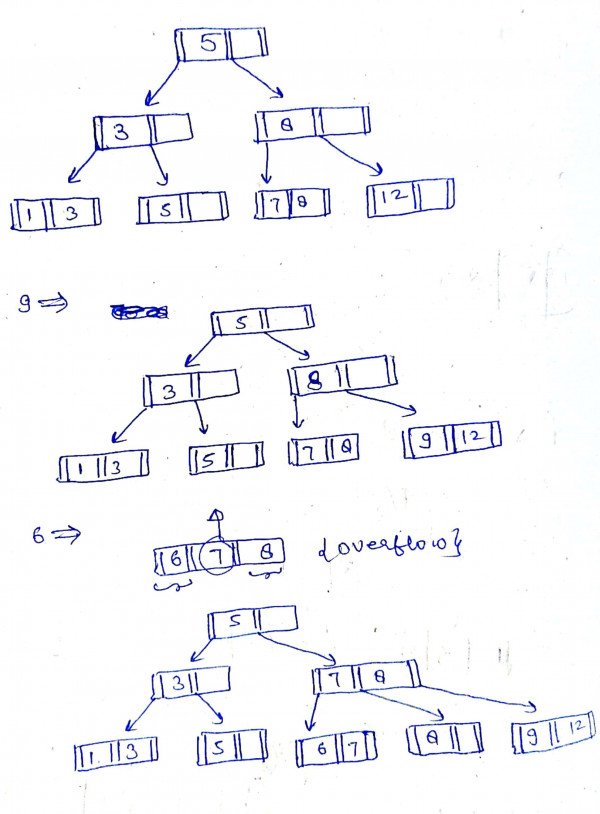 5
3 8
1 3 5 7 8 12
9 ⇒
5
3 8
1 3 5 7 8 9 12
6 ⇒ 6 7 8 {overflow}
5
3 7 8
1 3 5 6 7 8 9 12